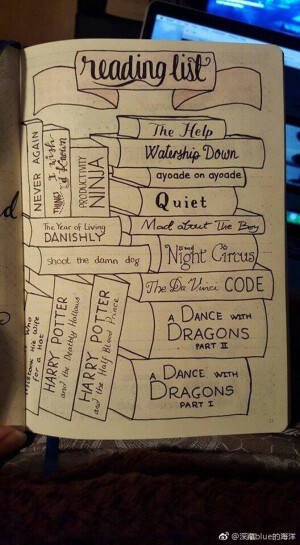 reading list
The Help
Watership Down
ayoade on ayoade
Quiet
Mad about The Boy
The Night Circus
The Da Vinci CODE
A DANCE WITH
DRAGONS
PART II
A DANCE WITH
DRAGONS
PART I
NEVER AGAIN
THINGS
I Wish
I'd Known
PRODUCTIVITY
NINJA
The Year of Living
DANISHLY
shoot the damn dog
Who
Mistook his Wife
for a Hat
HARRY POTTER
and the Deathly Hallows
HARRY POTTER
and the Half Blood Prince
@深藏blue的海洋